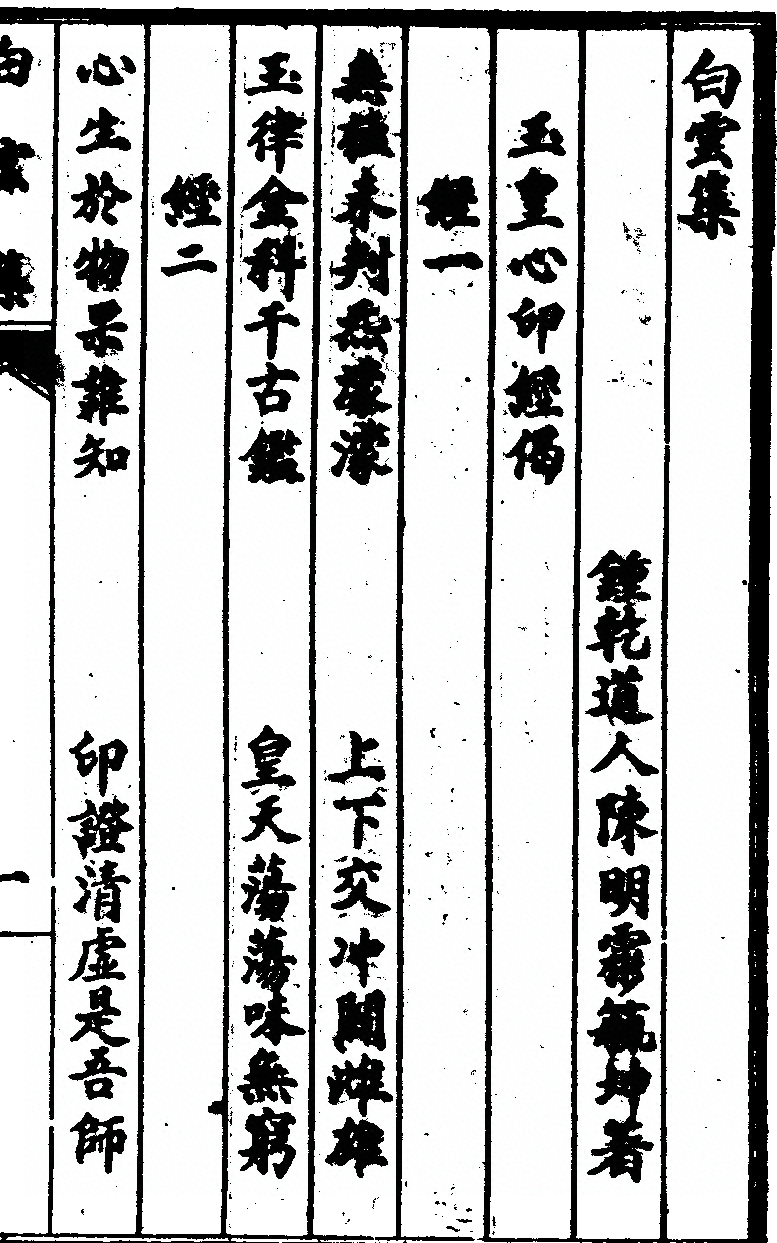 白雲集
鍾乾道人陳明霖毓坤著
玉皇心印經偈
經一
無極未判炁濛濛 上下交冲闢雌雄
玉律金科千古鑑 皇天蕩蕩味無窮
經二
心生於物果難知 印證清虛是吾師
白雲集 一